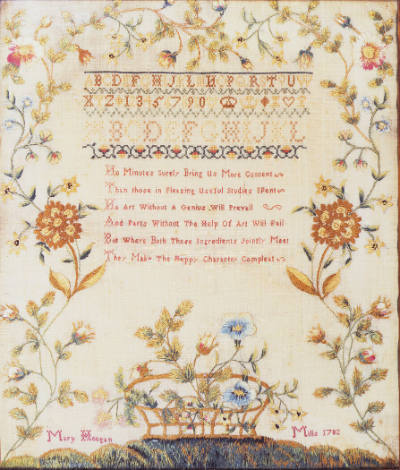 B D F H J L N P R T U W
X Z 1 3 5 7 9 0
B D F H J L
No Minutes Surely Bring Us More Content
Than those in Pleasing Useful Studies Spent
No Art Without A Genius Will Prevail
And Parts Without The Help Of Art Will Fail
But Where Both These Ingredients Jointly Meet
They Make The Happy Character Compleat
Mary Mills 1782